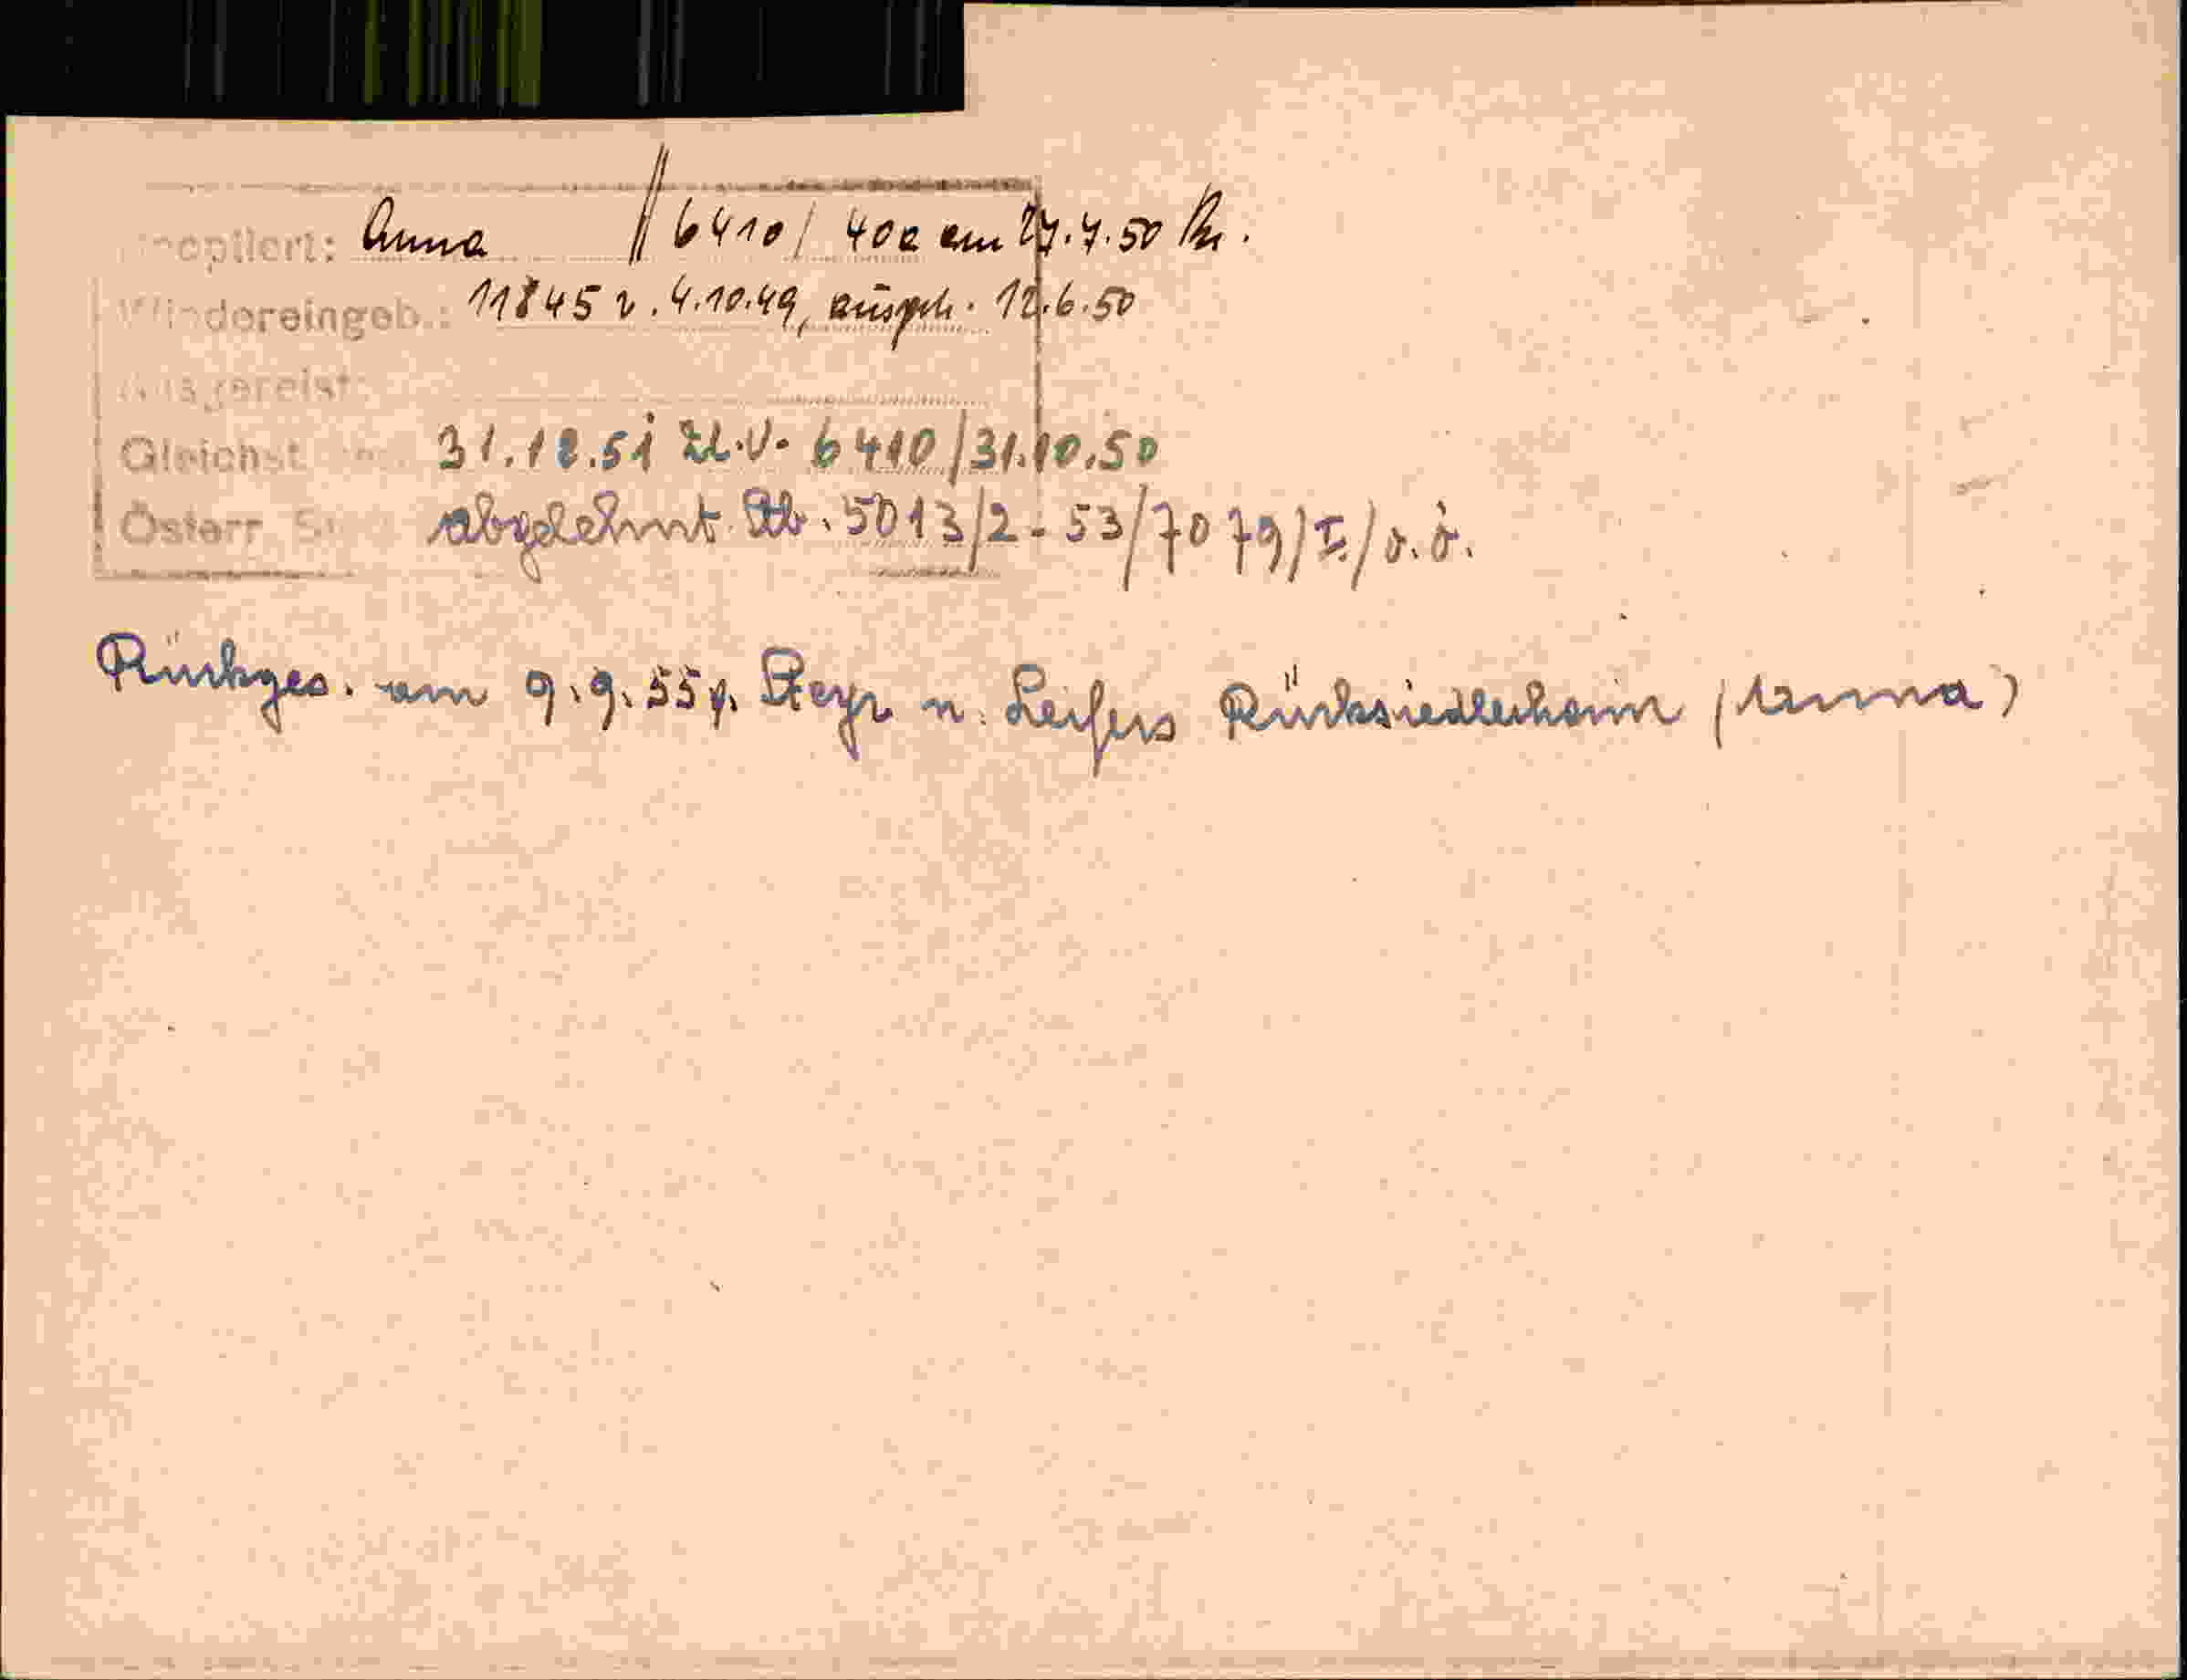 Reoptiert: Anna // 6410/ 400 am 27.7.50
Wiedereingeb.: 11845 v. 4.10.49, ausgeh. 12.6.50
Ausgereist:
Gleichst 31.12.51 Zl.V. 6410/31.10.50
Österr. abgelehnt Stb. 5013/2-53/7079/I/
Rückges. am 9.9.55 v. Steyr n. Leifers Rücksiedlerheim (Anna)